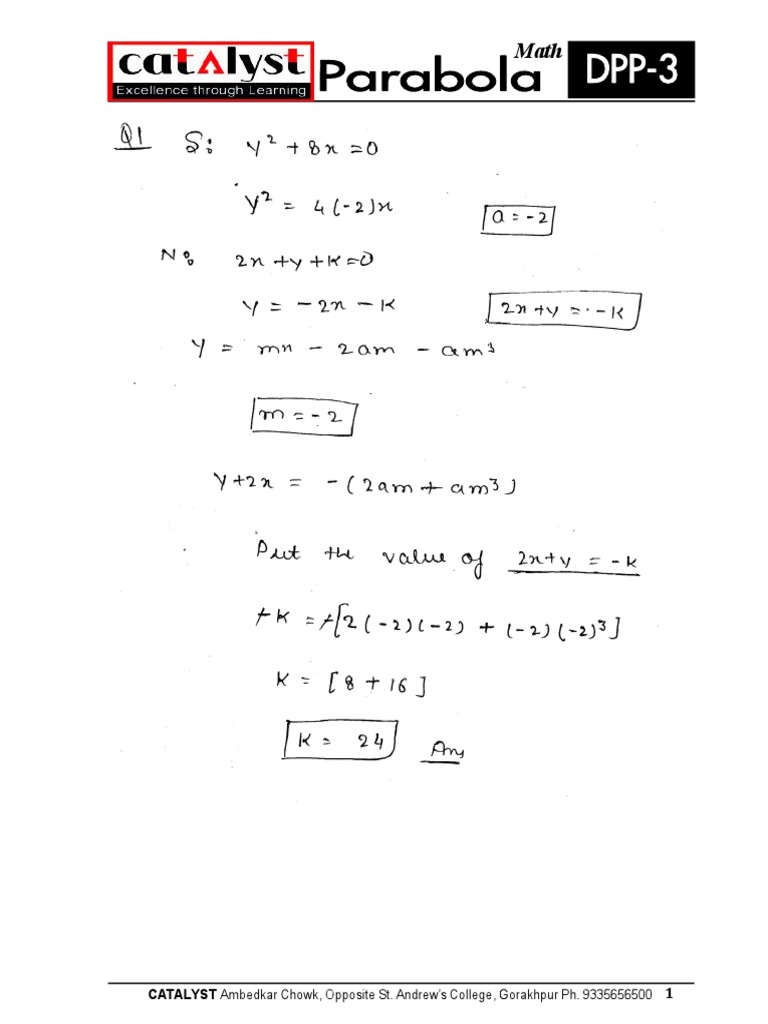 catalyst
Excellence through Learning
Parabola
Math
DPP-3
Q1 S: y² + 8x = 0
y² = 4(-2)x
a = -2
N: 2x + y + k = 0
y = -2x - k
2x + y = -k
y = mx - 2am - am³
m = -2
y + 2x = -(2am + am³)
Put the value of 2x + y = -k
-k = -[2(-2)(-2) + (-2)(-2)³]
k = [8 + 16]
k = 24 Ans
CATALYST Ambedkar Chowk, Opposite St. Andrew's College, Gorakhpur Ph. 9335656500 1